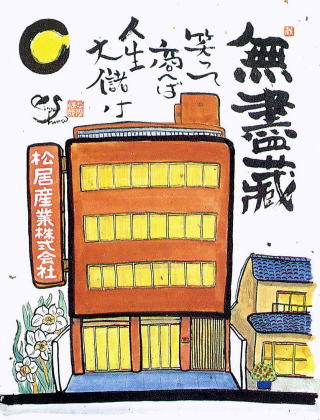 無盡藏
笑って
商へば
人生
大儲け
松居産業株式会社